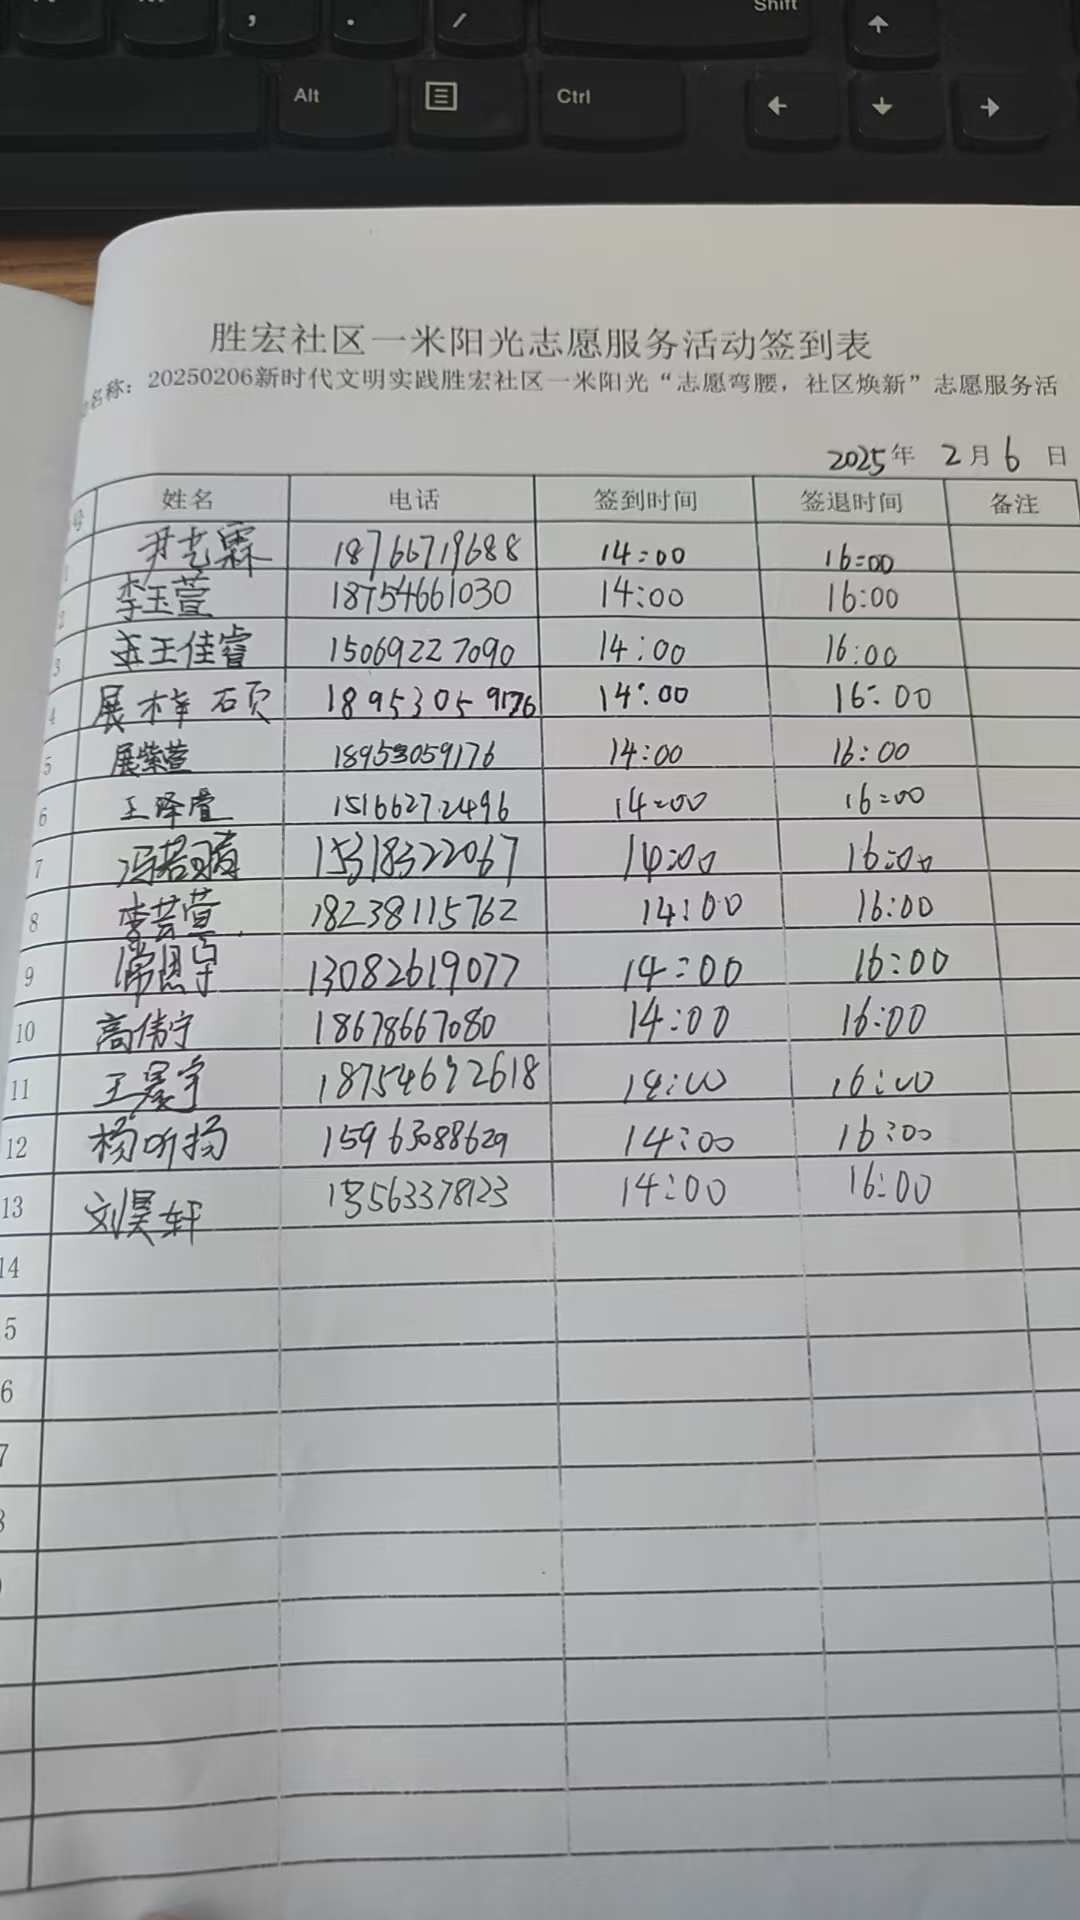 Shift
, . /
Alt Ctrl
← ↓ → ↑
胜宏社区一米阳光志愿服务活动签到表
名称：20250206新时代文明实践胜宏社区一米阳光“志愿弯腰，社区焕新”志愿服务活
2025年 2月6日
号 姓名 电话 签到时间 签退时间 备注
1 尹艺霖 18766719688 14:00 16:00
2 李玉萱 18754661030 14:00 16:00
3 王佳睿 15069227090 14:00 16:00
4 展梓硕 18953059176 14:00 16:00
5 展紫萱 18953059176 14:00 16:00
6 王泽萱 15166272496 14:00 16:00
7 冯若 15318322067 14:00 16:00
8 李芸萱 18238115762 14:00 16:00
9 常恩宇 13082619077 14:00 16:00
10 高伟宁 18678667080 14:00 16:00
11 王晨宇 18754692618 14:00 16:00
12 杨昕扬 15963088629 14:00 16:00
13 刘昊轩 13563378123 14:00 16:00
14
5
6
7
8